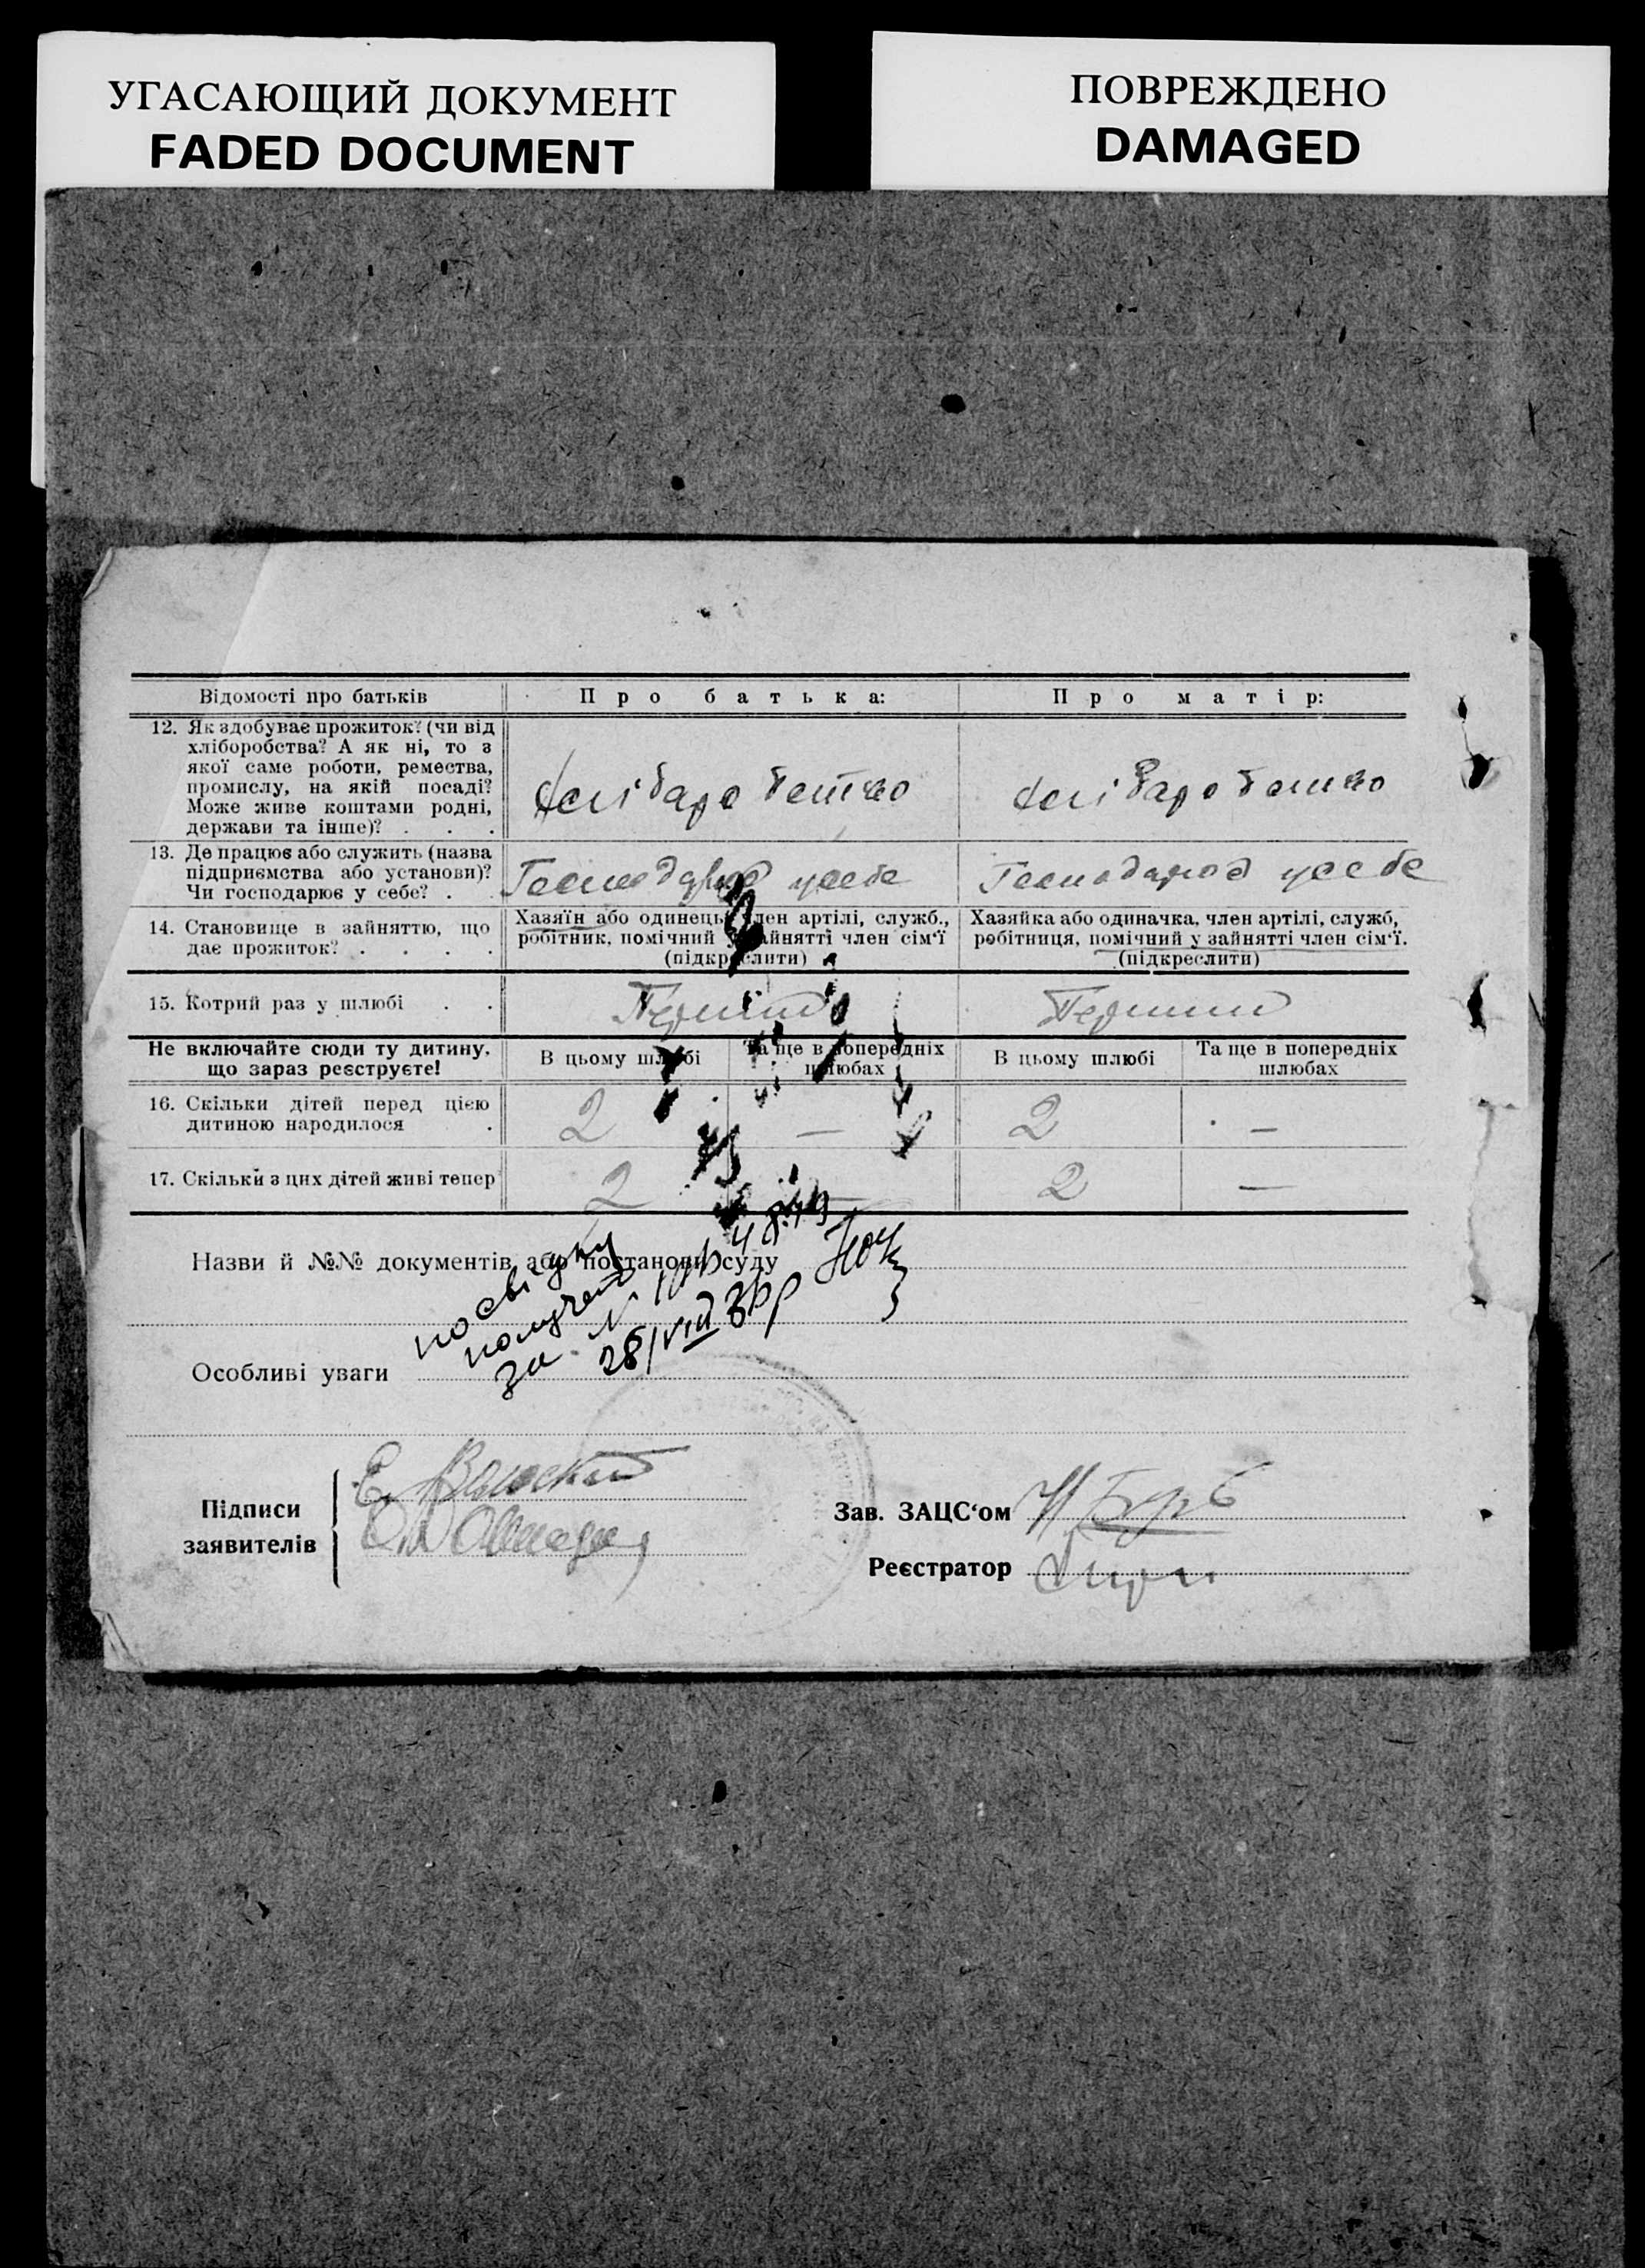 УГАСАЮЩИЙ ДОКУМЕНТ
FADED DOCUMENT
ПОВРЕЖДЕНО
DAMAGED
Відомості про батьків
Про батька:
Про матір:
12. Як здобуває прожиток? (чи від
хліборобства? А як ні, то з
якої саме роботи, ремества,
промислу, на якій посаді?
Може живе коштами родні,
держави та інше)? . . .
13. Де працює або служить (назва
підприємства або установи)?
Чи господарює у себе? .
14. Становище в зайняттю, що
дає прожиток? . . . .
Хазяїн або одинець, член артілі, служб.,
робітник, помічний у зайнятті член сім'ї
(підкреслити)
Хазяйка або одиначка, член артілі, служб,
робітниця, помічний у зайнятті член сім'ї.
(підкреслити)
15. Котрий раз у шлюбі . .
Перший
Перший
Не включайте сюди ту дитину,
що зараз реєструєте!
В цьому шлюбі
Та ще в попередніх
шлюбах
В цьому шлюбі
Та ще в попередніх
шлюбах
16. Скільки дітей перед цією
дитиною народилося .
2
—
2
—
17. Скільки з цих дітей живі тепер
2
—
2
—
Назви й №№ документів або постанови суду
за N
28/VIII
Особливі уваги
Підписи
заявителів
Зав. ЗАЦС'ом
Реєстратор